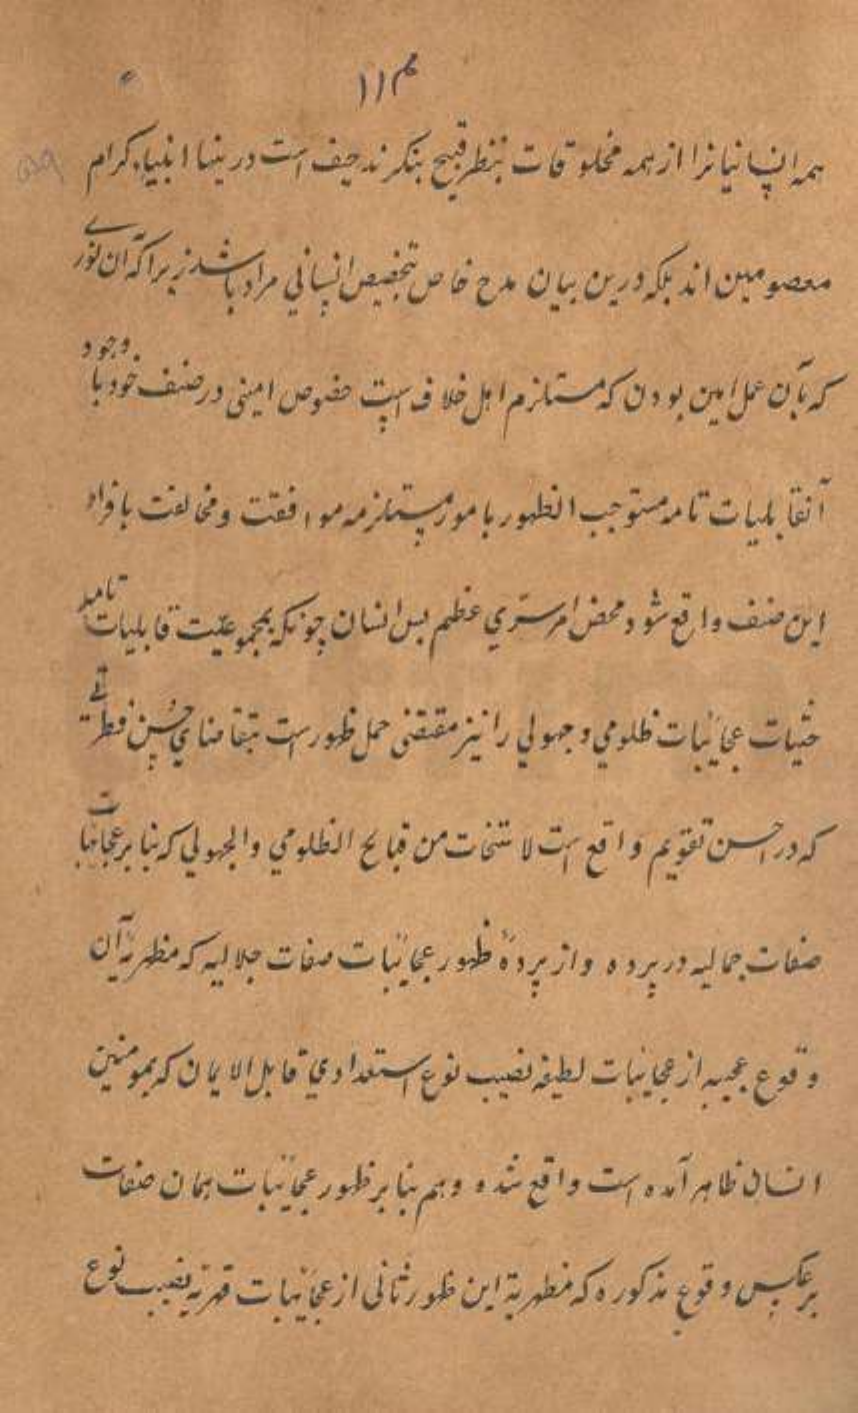 م١١
همه انسانیانرا از همه مخلوقات بنظر قبیح بنگرند حیف است درینها انبیاء کرام
معصومین اند بلکه درین بیان مدح خاص بتخصیص انسانی مراد باشد زیرا که آن نوری
که بآن عمل امین بودن که مستلزم اهل خلاف است خصوص امینی در صنف خود با وجود
آنقابلیات تامه مستوجب الظهور بامور مستلزمه موافقت و مخالفت بافراد
این صنف واقع شود محض امر سرّی عظیم پس انسان چونکه بمجموعیّت قابلیات تامه
حثیات عجائبات ظلومی و جهولی را نیز مقتضی حمل ظهور است بتقاضای حُسن فطرتے
که در احسن تقویم واقع است لا من قبایح الظلومی والجهولی که بنا بر عجائبات
صفات جمالیه در پرده و از پردهٔ ظهور عجائبات صفات جلالیه که مظهریهٔ آن
وقوع عجیبه از عجائبات لطیفه نصیب نوع استعدادی قابل الایمان که بمومنین
انسانی ظاهر آمده است واقع شده و هم بنا بر ظهور عجائبات همان صفات
برعکس وقوع مذکوره که مظهریة این ظهور ثانی از عجائبات قهریه نصیب نوع